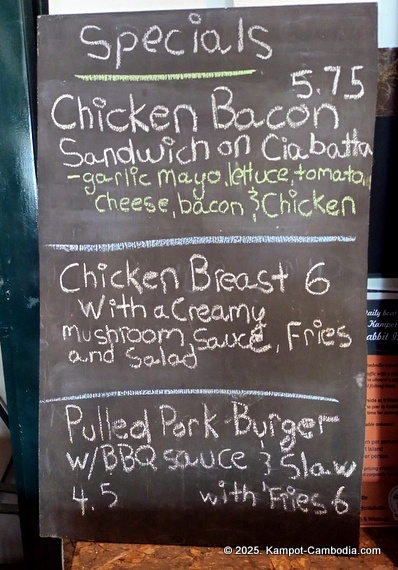 Specials
5.75
Chicken Bacon
Sandwich on Ciabatta
-garlic mayo, lettuce, tomato,
cheese, bacon & Chicken
Chicken Breast 6
With a Creamy
mushroom Sauce, Fries
and Salad
Pulled Pork Burger
w/BBQ sauce & Slaw
4.5 with Fries 6
Kampot
© 2025 Kampot-Cambodia.com